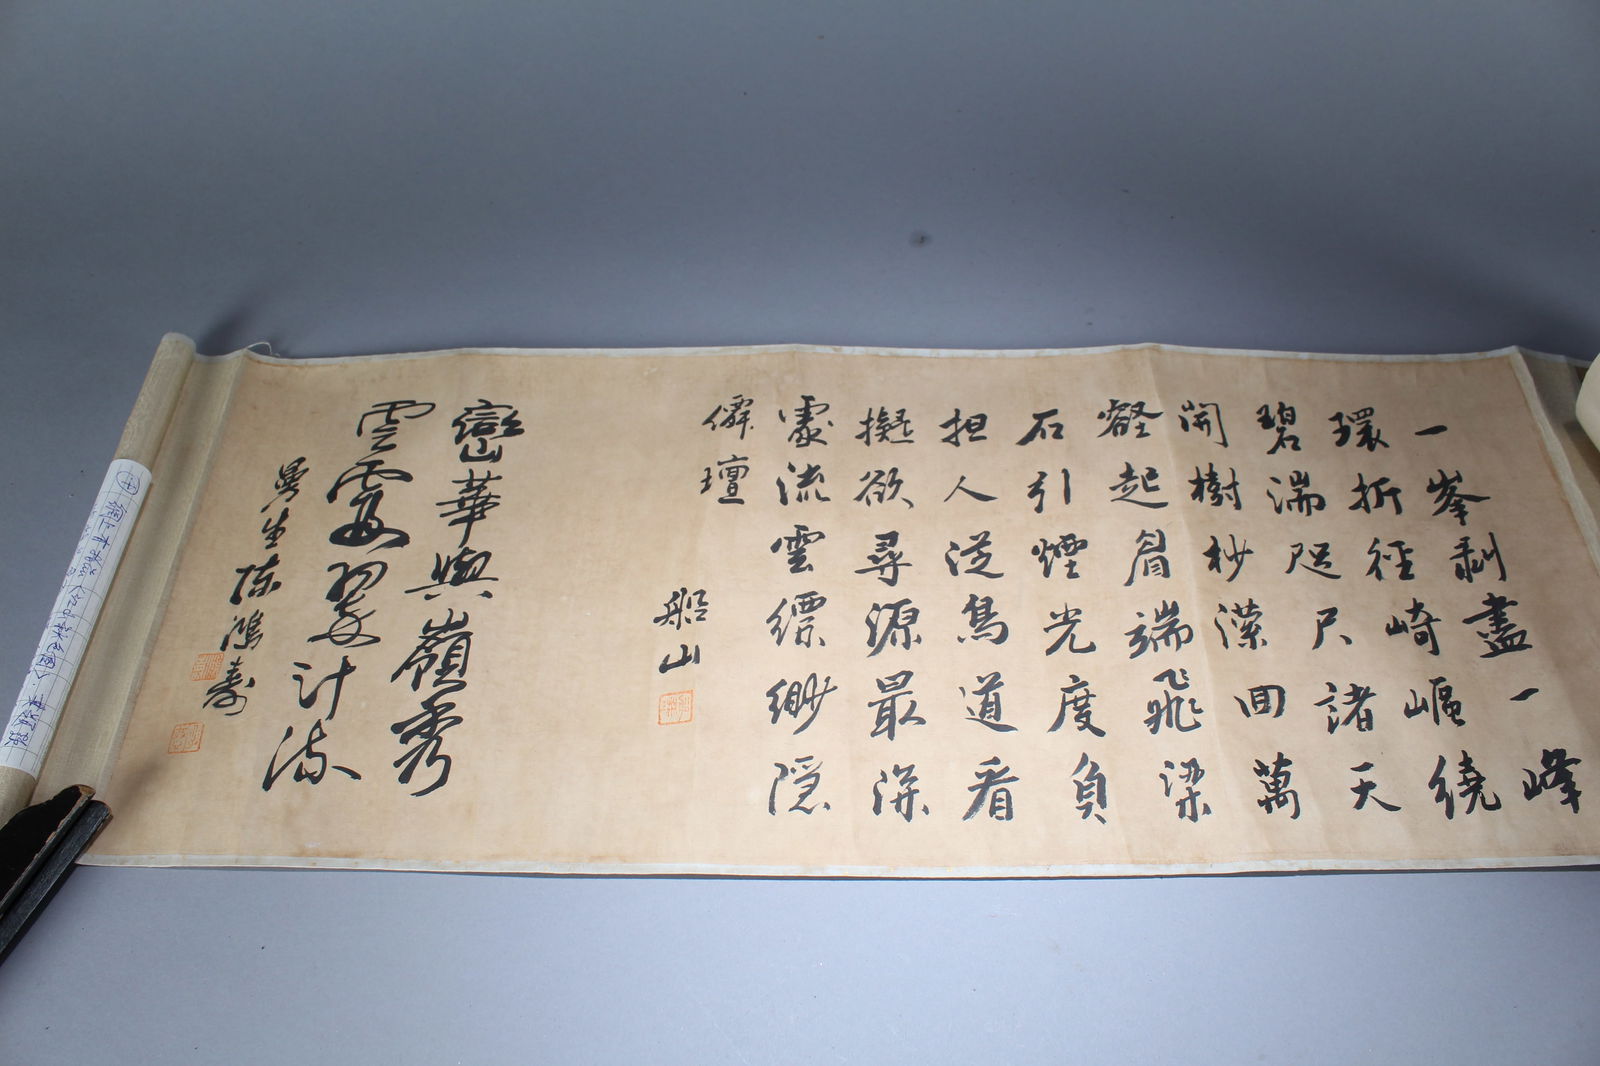 一峯剥盡一峰
環折徑崎嶇繞
碧湍咫尺諸天
開樹杪濛回萬
壑起眉端飛梁
石引煙光度負
担人從鳥道看
擬欲尋源最深
處流雲縹緲隱
僊壇
船山
巒華與嶺秀
雲霞翠計流
曼生陳鴻壽